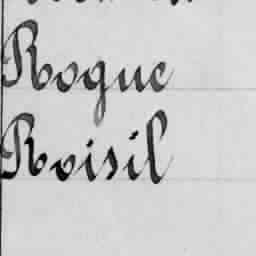 Rogue
Roisil